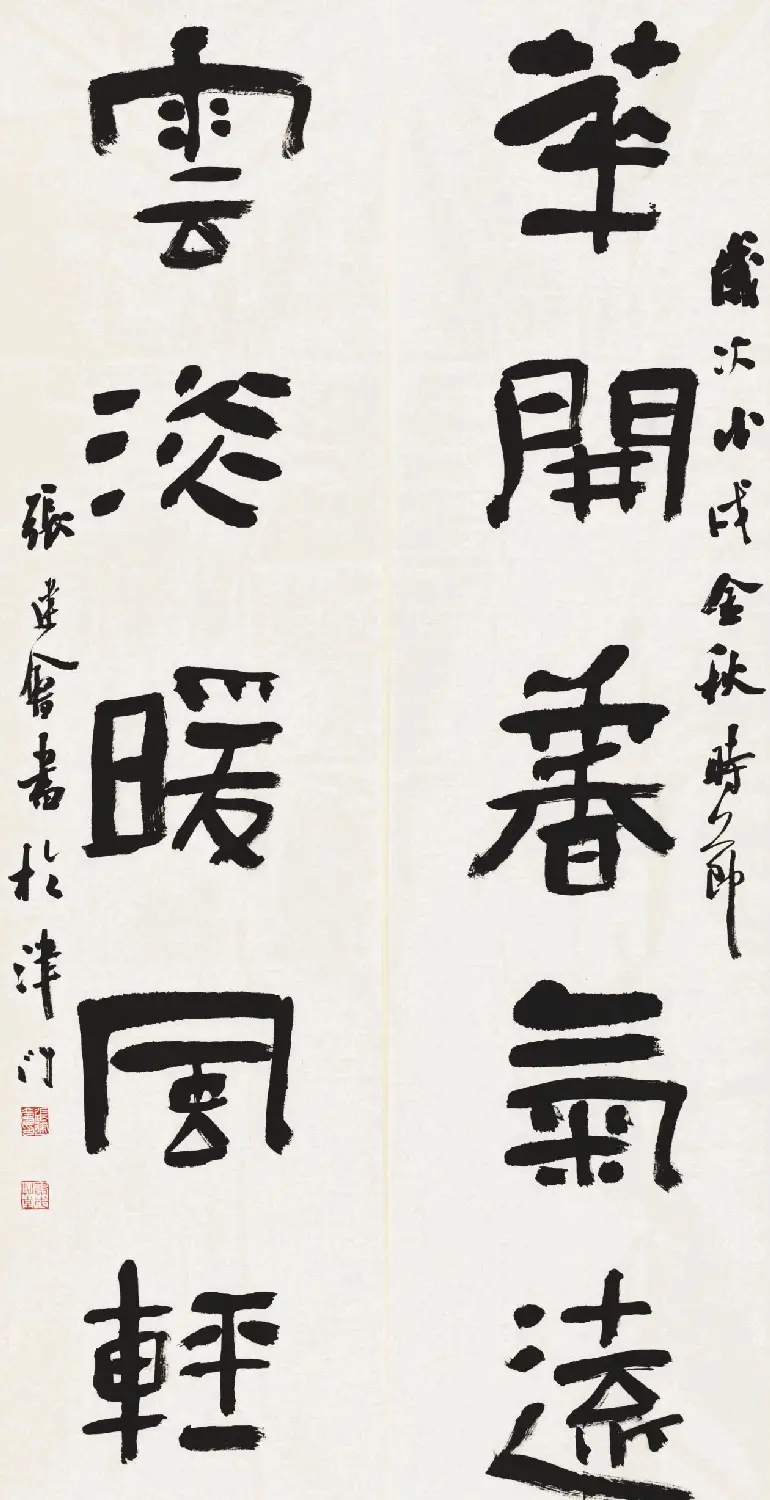 歲次戊戌金秋時節
華開香氣遠
雲淡暖風輕
張建會書於津門